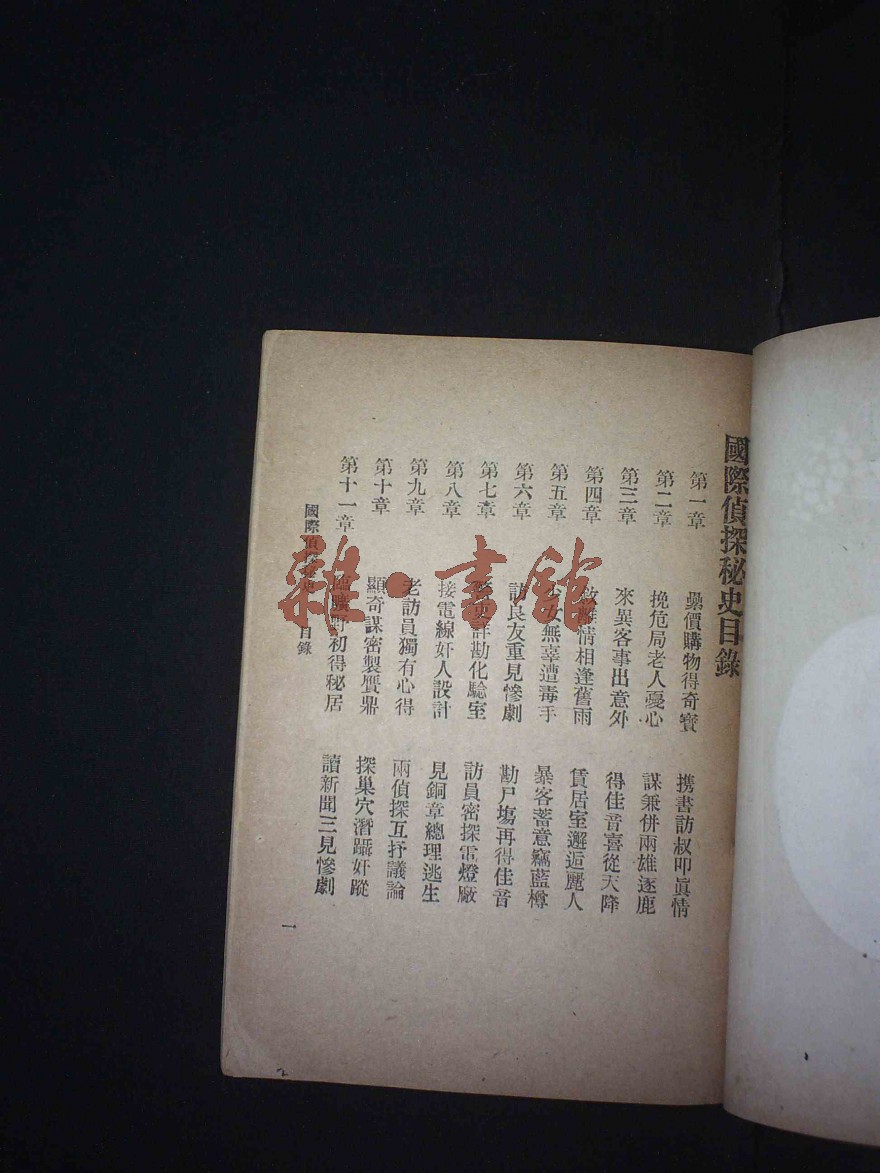 國際偵探秘史目錄
第一章　價購物得奇寶　携書訪叔叩眞情
第二章　挽危局老人憂心　謀秉併兩雄逐鹿
第三章　來異客事出意外　得佳音喜從天降
第四章　敘離情相逢舊雨　賃居室邂逅麗人
第五章　少女無辜遭毒手　暴客蓄意竊藍樽
第六章　訪良友重見慘劇　勘尸塲再得佳音
第七章　詳勘化驗室　訪員密探電燈廠
第八章　接電線奸人設計　見銅章總理逃生
第九章　老訪員獨有心得　兩偵探互抒議論
第十章　顯奇謀密製贋鼎　探巢穴潛躡奸蹤
第十一章　臨曠野初得秘居　讀新聞三見慘劇
國際偵探秘史　目錄　一
雜·書館